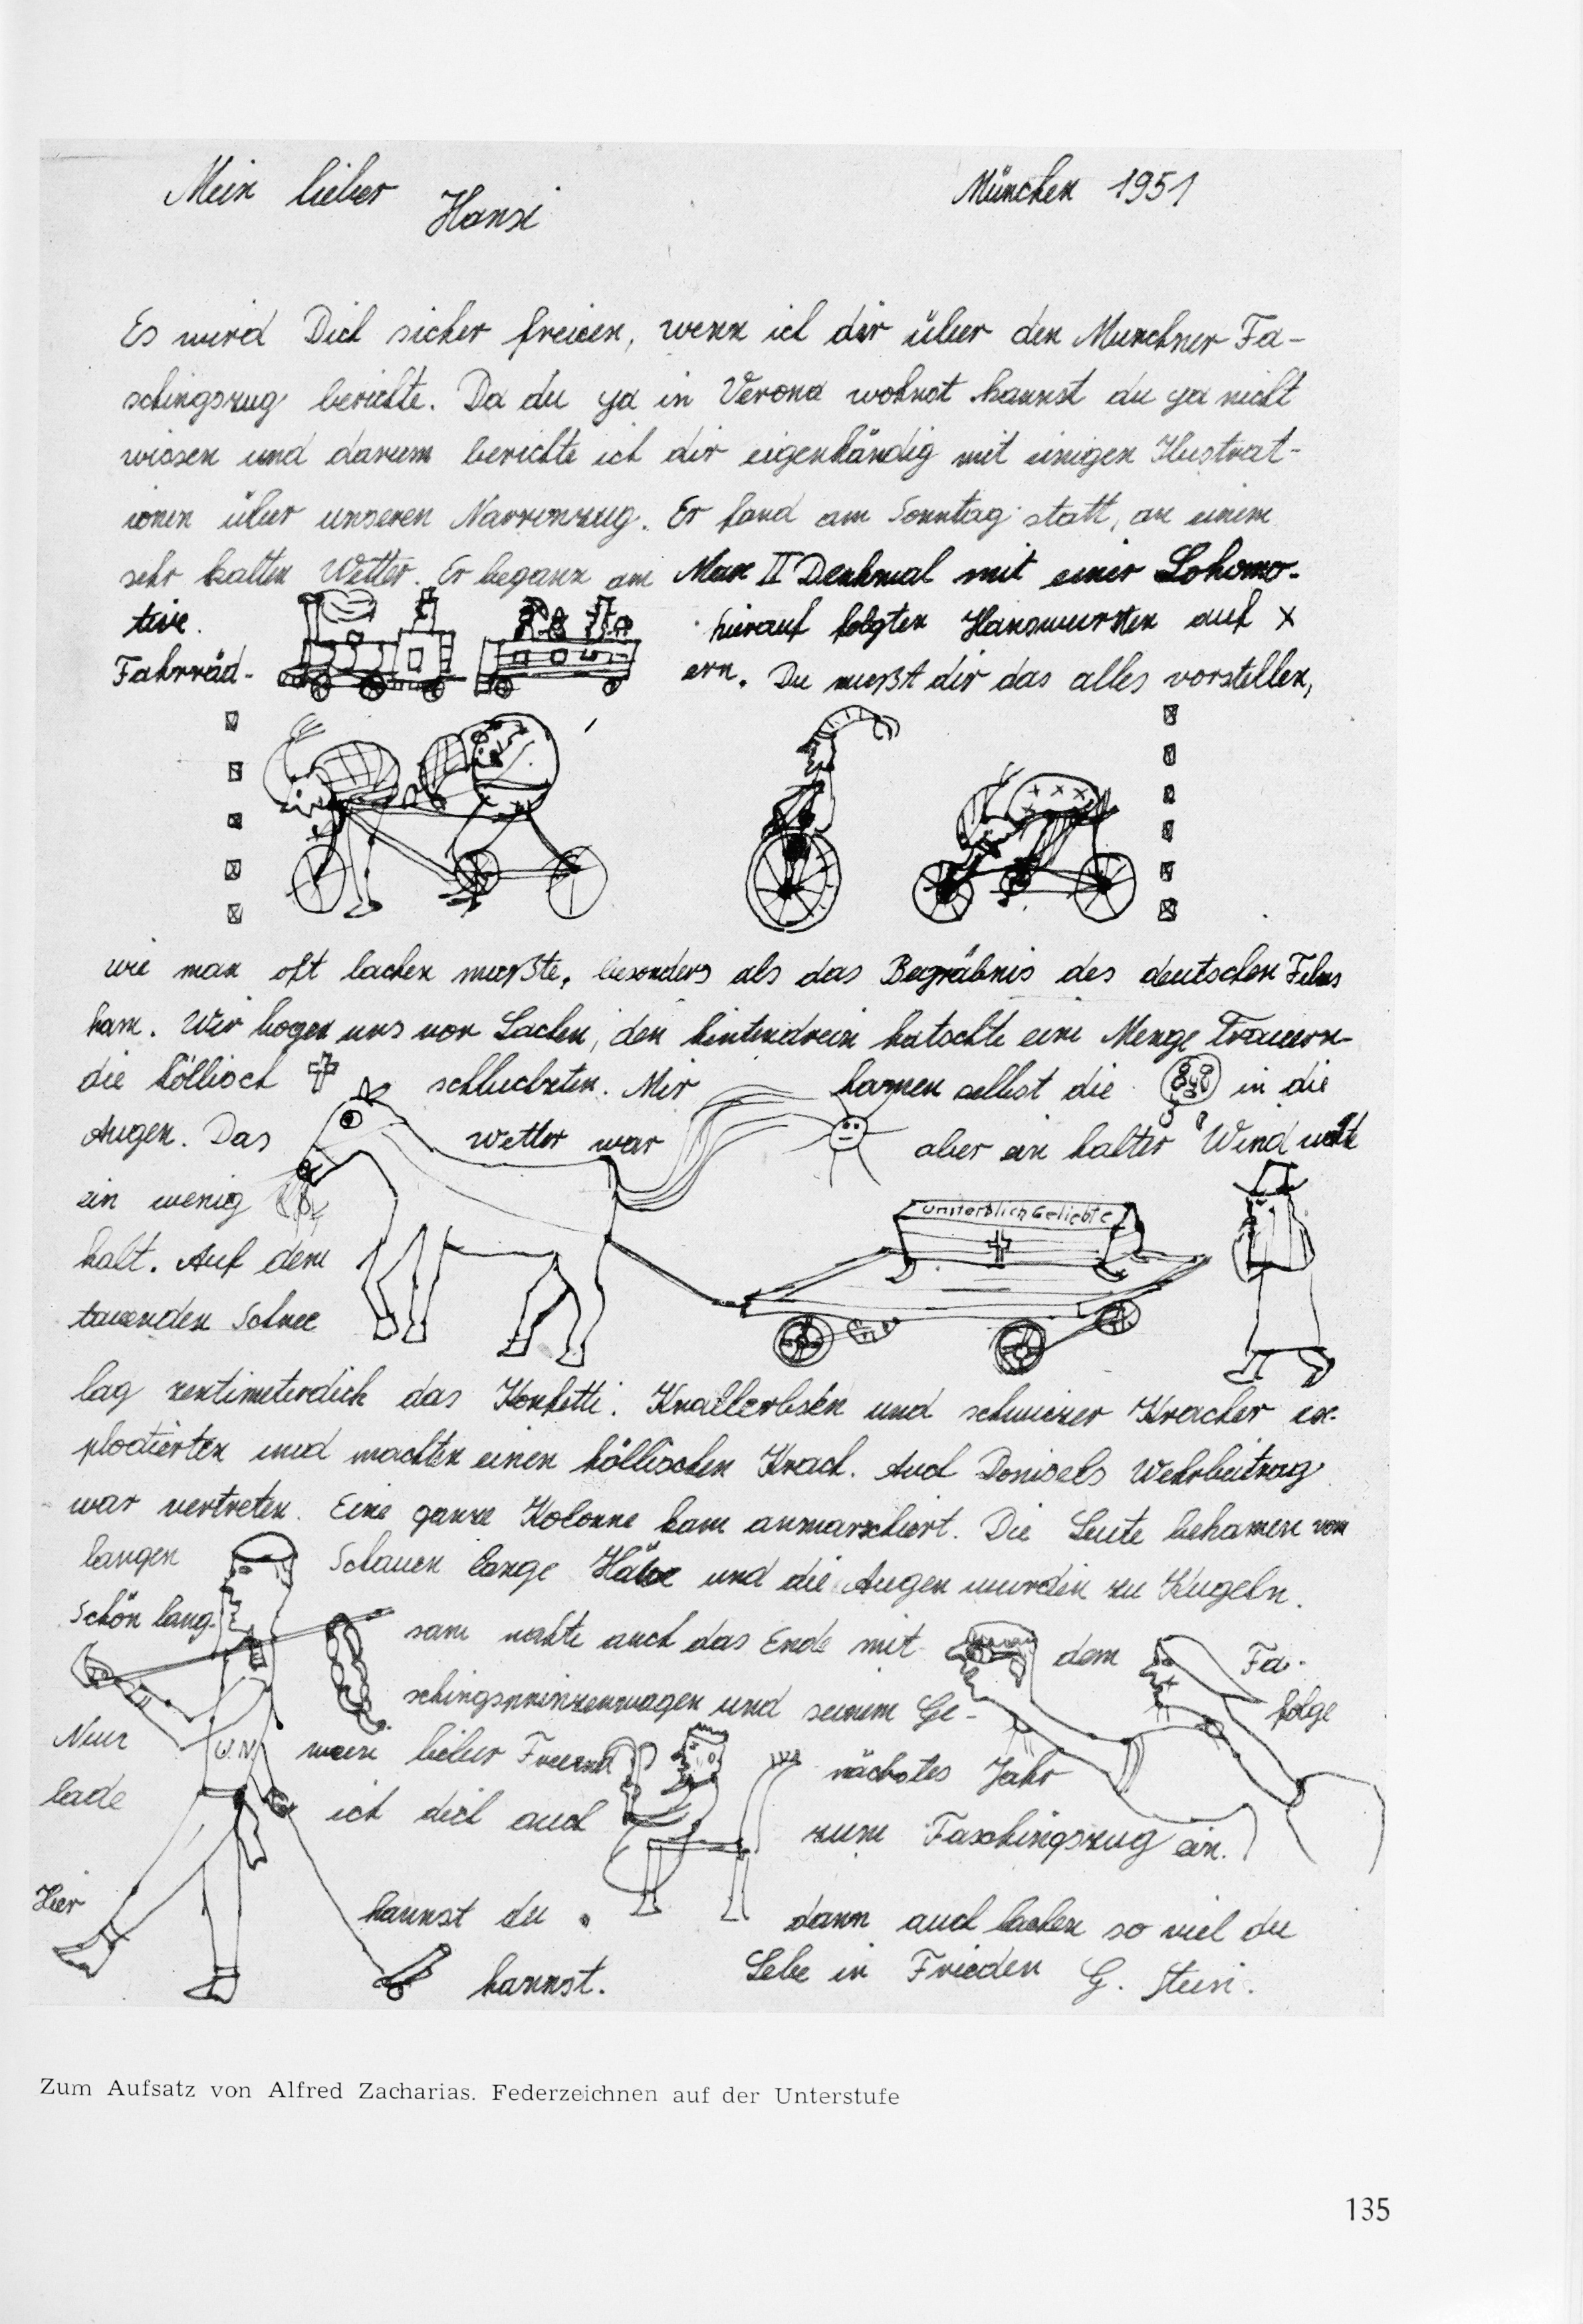 Mein lieber Hansi
München 1951
Es wird Dich sicher freuen, wenn ich dir über den Munchner Fa-
schingszug berichte. Da du ja in Verona wohnst kannst du ja nicht
wissen und darum berichte ich dir eigenhändig mit einigen Ilustrat-
ionen über unseren Narrenzug. Er fand am Sonntag statt, an einem
sehr kalten Wetter. Er begann am Max II Denkmal mit einer Lokomo-
tive. hierauf folgten Hanswursten auf x
Fahrräd- ern. Du mußt dir das alles vorstellen,
wie man oft lachen mußte, besonders als das Begräbnis des deutschen Films
kam. Wir bogen uns vor Lachen, den hintendrein hatschte eine Menge Trauern-
die höllisch schluchzten. Mir kamen selbst die in die
Augen. Das Wetter war aber ein kalter Wind
ein wenig
unsterblich Geliebte
kalt. Auf dem
tauenden Schnee
lag zentimeterdick das Konfetti. Knallerbsen und schweizer Kracher ex-
plodierten und machten einen höllischen Krach. Auch Donisels Wehrbeitrag
war vertreten. Eine ganze Kolonne kam anmarschiert. Die Leute bekamen vom
langen Schauen lange Hälse und die Augen wurden zu Kugeln.
Schön lang- sam nahte auch das Ende mit dem Fa-
schingsprinzenwagen und seinem Ge- folge
Nun mein lieber Freund nächstes Jahr
U.N.
lade ich dich auch zum Faschingszug ein.
Hier kannst du dann auch lachen so viel du
kannst. Lebe in Frieden G. Stein.
Zum Aufsatz von Alfred Zacharias. Federzeichnen auf der Unterstufe
135